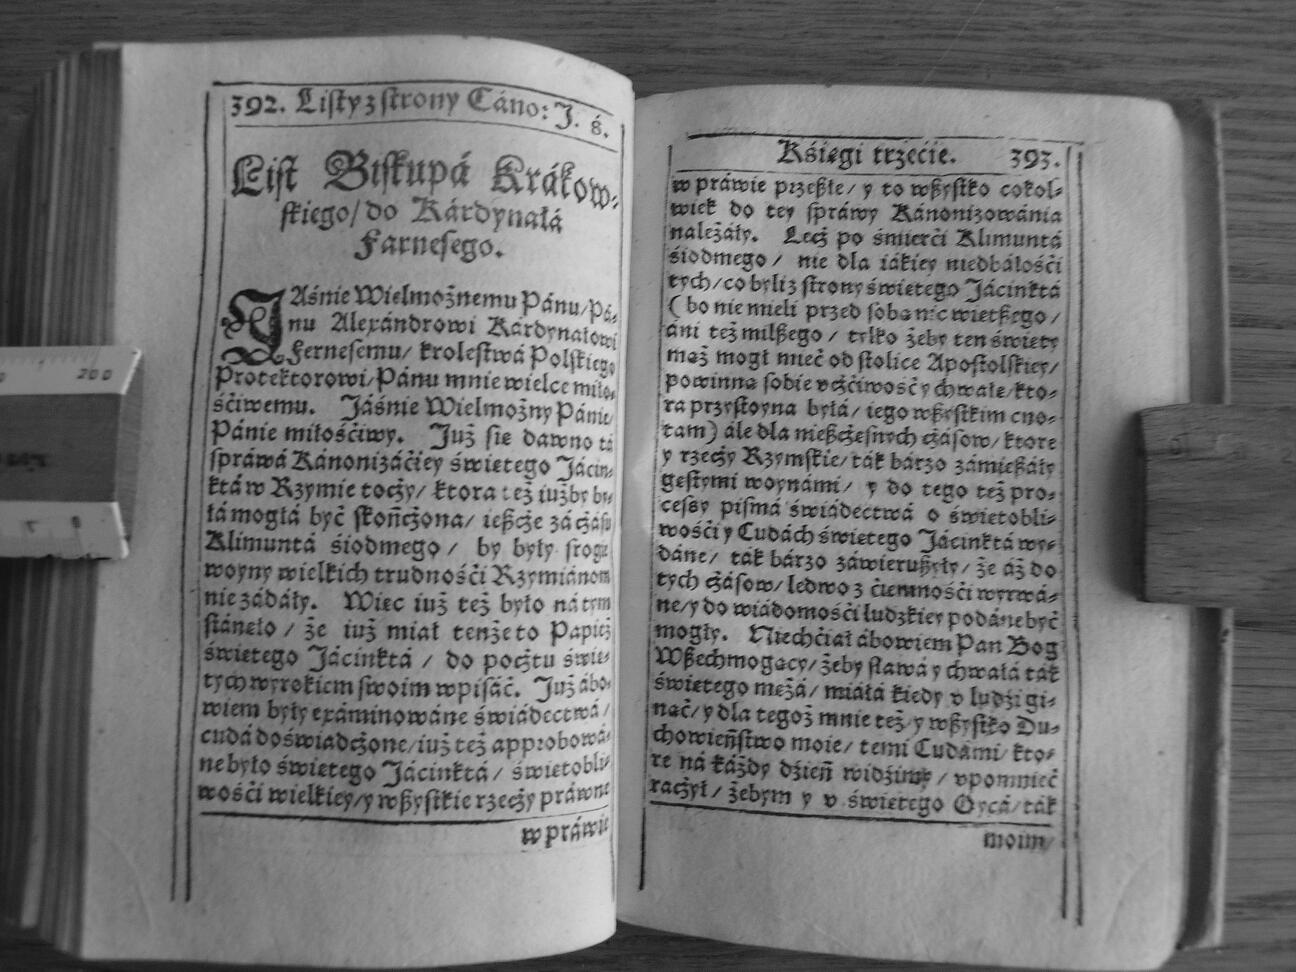 392. Listy z strony Cáno: J. ś.
List Biskupá Krákow-
skiego/ do Kárdynałá
Farnesego.
JAśnie Wielmożnemu Pánu/ Pá-
nu Alexándrowi Kárdynałowi
Fernesemu/ krolestwá Polskiego
Protektorowi/ Pánu mnie wielce miło-
śćiwemu. Jáśnie Wielmożny Pánie/
Pánie miłośćiwy. Już sie dawno tá
spráwá Kánonizáciey świetego Jácin-
ktá w Rzymie toczy/ ktora też iużby by-
łá mogłá być skończona/ ieszcze zá czásu
Klimuntá siodmego / by były srogie
woyny wielkich trudnośći Rzymiánom
nie zádáły. Wiec iuż też było ná tym
stáneło / że iuż miał tenże to Papież
świetego Jácinktá / do pocztu świe-
tych wyrokiem swoim wpisáć. Już ábo-
wiem były exáminowáne świádectwá /
cudá doświadczone/ iuż też approbowá-
ne było świetego Jácinktá / świetobli-
wośći wielkiey/ y wszystkie rzeczy práwne
w práwie
Kśięgi trzecie. 393.
w práwie przeszłe/ y to wszystko cokol-
wiek do tey spráwy Kánonizowánia
należáły. Lecz po śmierći Klimuntá
śiodmego / nie dla iákiey niedbáłośći
tych/ co byli z strony świetego Jácinktá
( bo nie mieli przed sobą nic wietszego /
áni też milszego / tylko żeby ten świety
mąż mogł mieć od stolice Apostolskiey/
powinną sobie vczćiwość y chwałe/ kto-
ra przystoyna byłá/ iego wszystkim cno-
tam) ále dla nieszczesnych czásow/ ktore
y rzeczy Rzymskie/ ták bárzo zámieszáły
gestymi woynámi/ y do tego też pro-
cessy pismá świádectwá o świetobli-
wośći y Cudách świetego Jácinktá wy-
dáne/ ták bárzo záwieruszyły/ że áż do
tych czásow/ ledwo z ćiemnośći wyrwá-
ne/ y do wiádomośći ludzkiey podáne być
mogły. Niechćiał ábowiem Pan Bog
Wszechmogący/ żeby sławá y chwałá ták
świetego mężá/ miáłá kiedy v ludźi gi-
náć/ y dla tegoż mnie też/ y wszystko Du-
chowieństwo moie/ temi Cudámi/ kto-
re ná káżdy dźień widźimy / vpomnieć
raczył/ żebym y v świetego Oycá/ ták
moim/